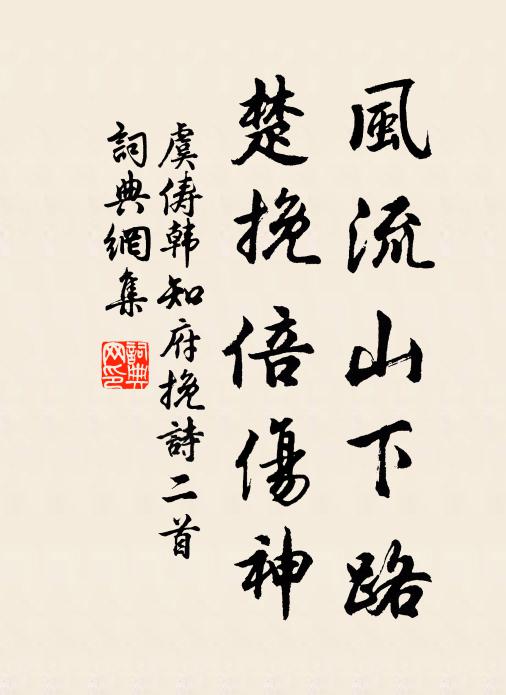 風流山下路
楚挽倍傷神
虞儔韩知府挽詩二首
詞典網集
詞典网印